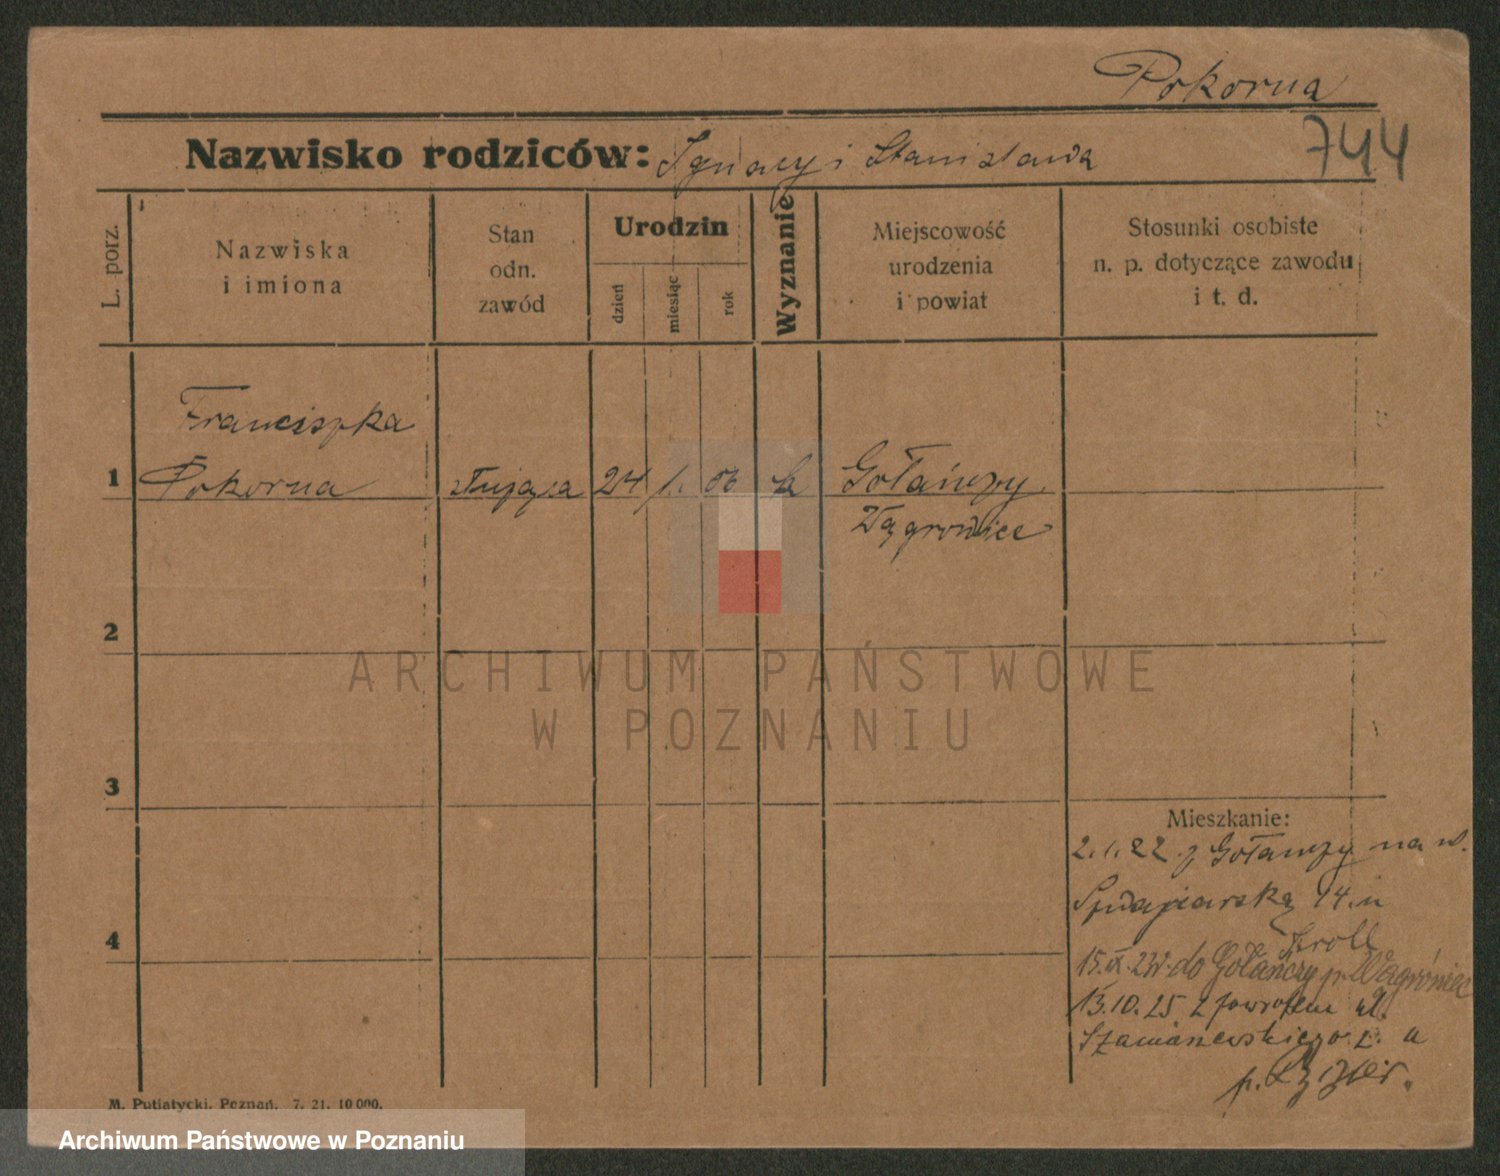 Pokorna
744
Nazwisko rodziców: Ignacy i Stanisława
L. porz.
Nazwiska
i imiona
Stan
odn.
zawód
Urodzin
dzień
miesiąc
rok
Wyznanie
Miejscowość
urodzenia
i powiat
Stosunki osobiste
n. p. dotyczące zawodu
i t. d.
Franciszka
1 Pokorna służąca 24 1. 06 k Gołańczy
Wągrowiec
2
ARCHIWUM PAŃSTWOWE
W POZNANIU
3
Mieszkanie:
2.1.22 z Gołańczy na w.
14. u
4
Kroll
15.IX. do Gołańczy p. Wągrówiec
13.10.25 z powrotem ul.
Szamarzewskiego u
p.
M. Putiatycki, Poznań. 7. 21. 10000.
Archiwum Państwowe w Poznaniu